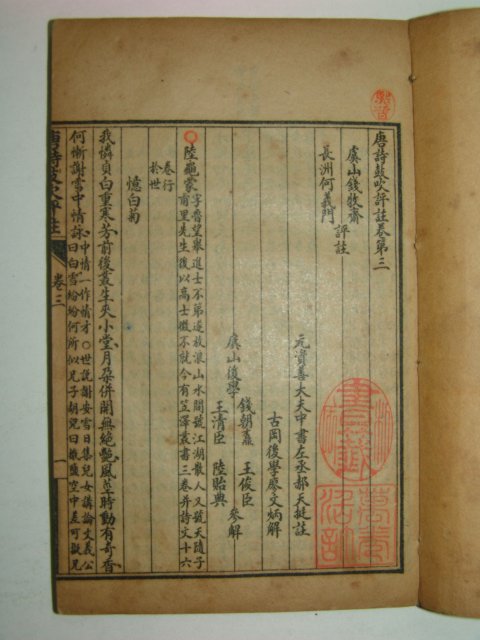 唐詩鼓吹評註卷第三
虞山錢牧齋
長洲何義門
評註
元資善大夫中書左丞郝天挺註
古岡後學廖文炳解
虞山後學
錢朝鼒 王俊臣
王清臣 陸貽典
參解
陸龜蒙字魯望舉進士不第遂放浪山水間號江湖散人又號天隨子
甫里先生後以高士徵不就今有笠澤叢書三卷并詩文十六
卷行
於世
憶白菊
我憐貞白重寒芳前後叢生夾小堂月朶併開無絶艷風莖時動有奇香
何慚謝雪中情詠中情一作清才○世說謝安雪日集兒女講論文義公
曰白雪紛紛何所似兄子胡兒曰撒鹽空中差可擬兄
唐詩鼓吹評註
卷三
一